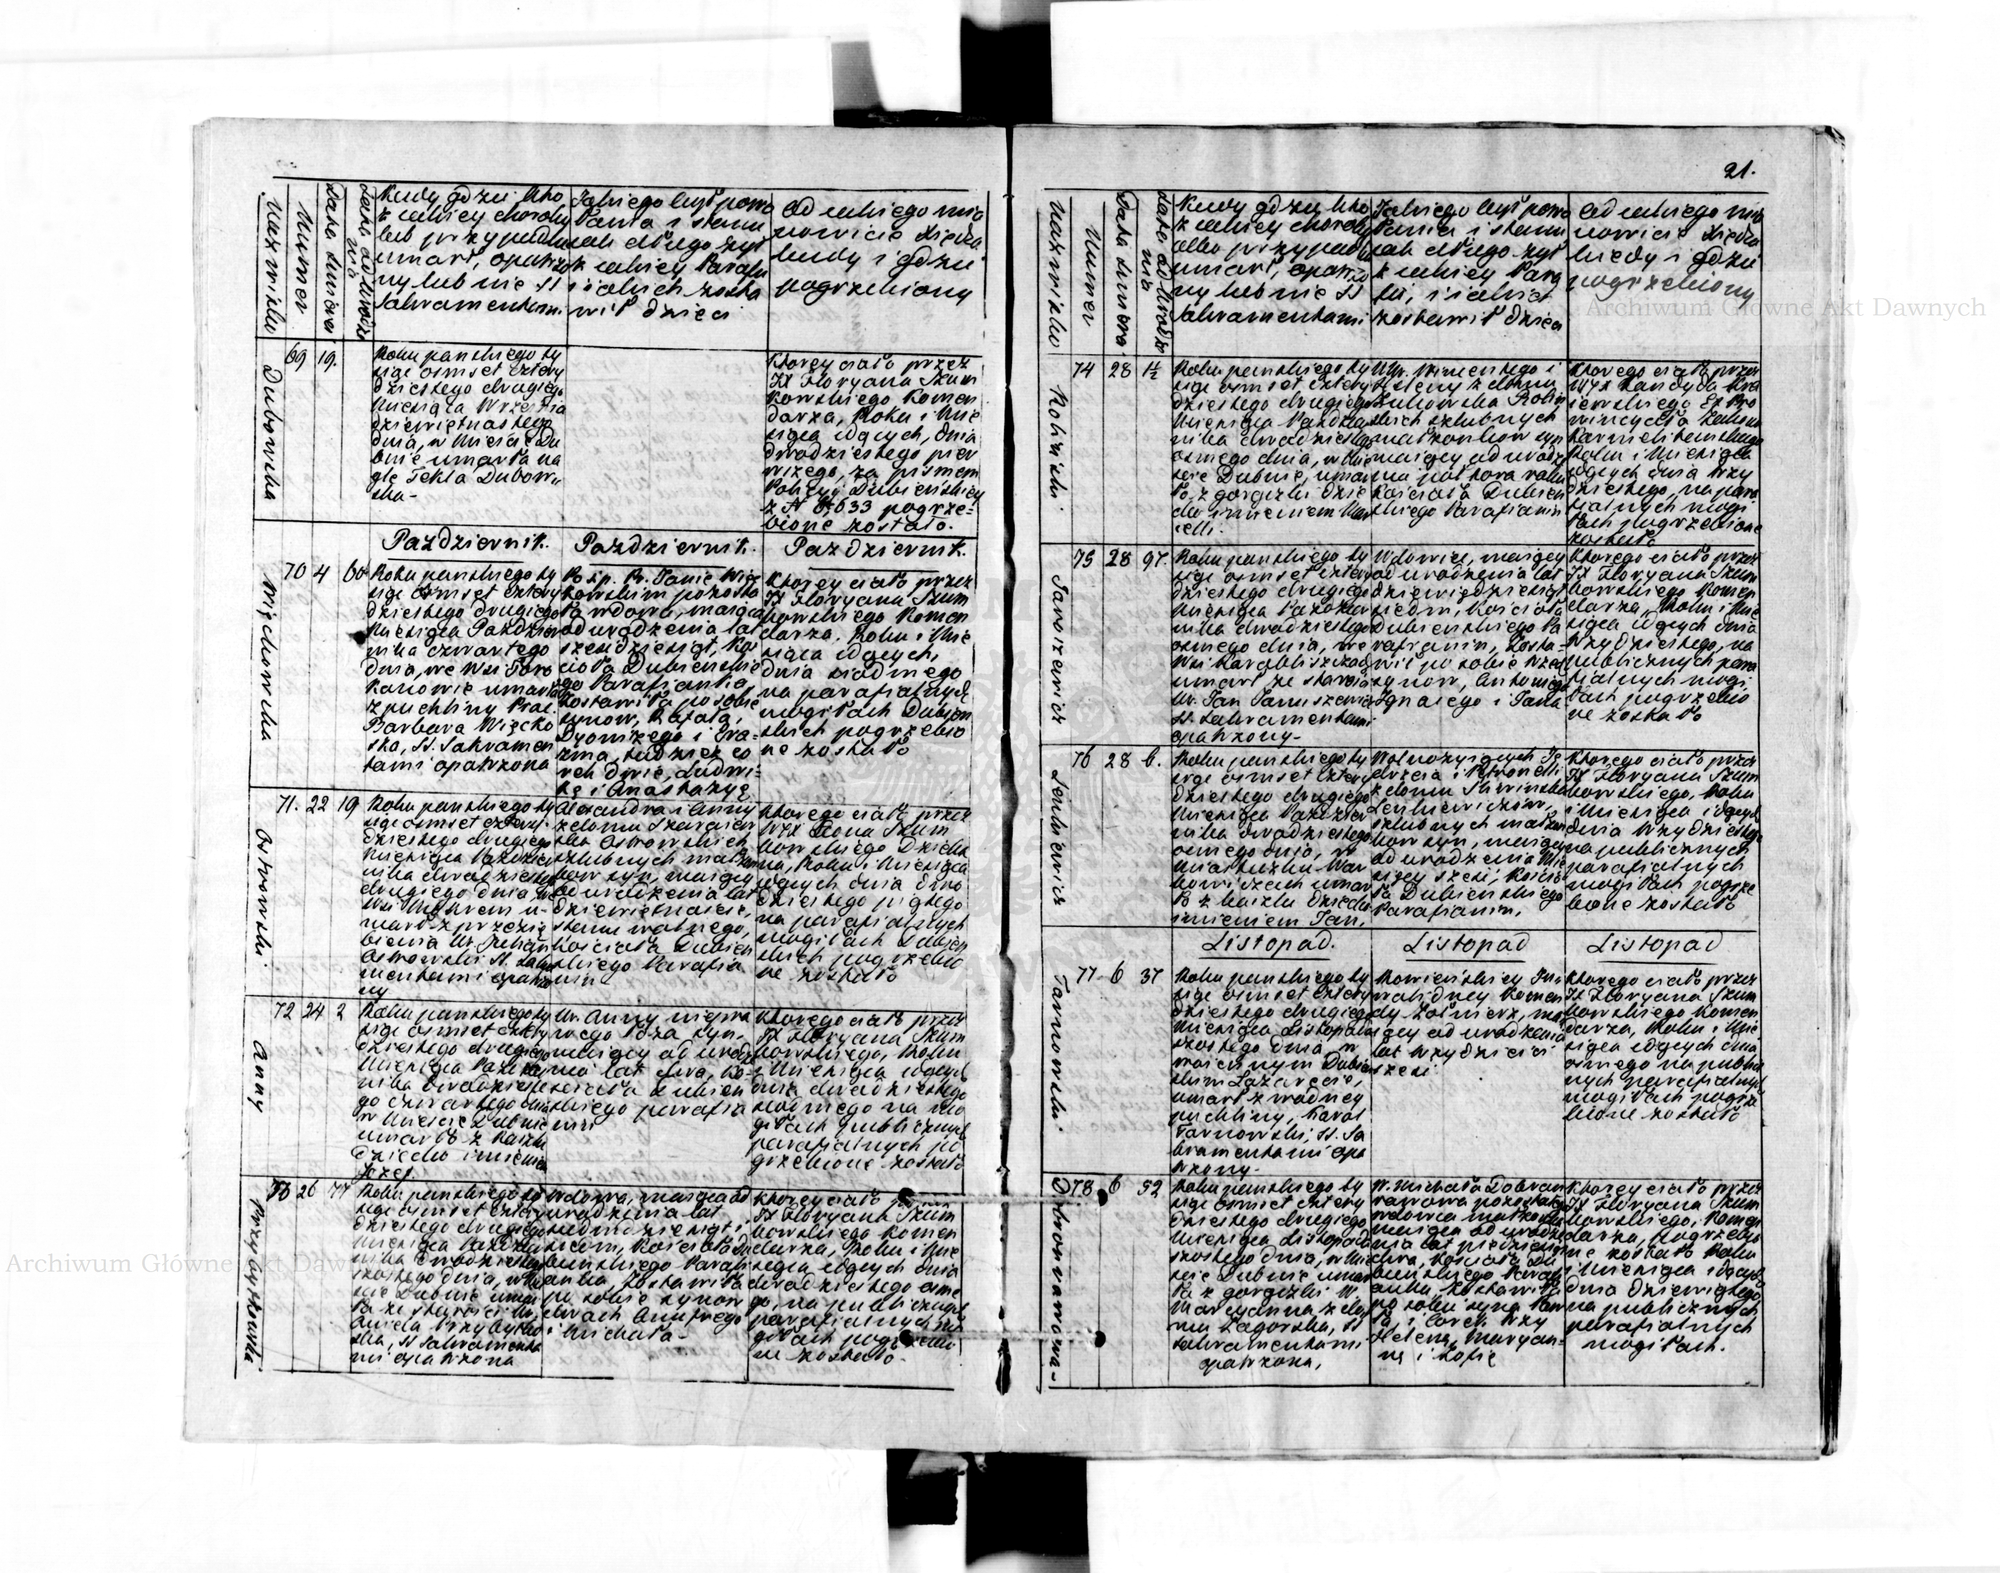 21.
Nazwisko
Numer
Data śmierci
Lata od Urodze
nia
Kiedy gdzie kto
z jakiey choroby
lub przypadku
umarł, opatrzo
ny lub nie SS
Sakramentami
Jakiego był powo
łania i stanu
jak długo żył
z jakiey Parafii
i jakich zosta
wił dzieci
Od jakiego mia
nowicie Xiędza
kiedy i gdzie
pogrzebiony
Dubowska
69 19.
Roku panskiego ty
siąc osmset cztery
dziestego drugiego
Miesiąca Września
dziewiętnastego
dnia, w Mieście Du
bnie umarła na
gle Tekla Dubow
ska-
Ktorey ciało przez
JX Floryana Szum
kowskiego Komen
darza, Roku i Mie
siąca idących, dnia
dwudziestego pier
wszego, za pismem
Policyi Dubieńskiey
z N 8,633 pogrze=
bione zostało.
Pazdziernik. Pazdziernik. Pazdziernik.
Więckowska
70 4 60
Roku panskiego ty
siąc osmset cztery
dziestego drugiego
Miesiąca Pazdzier
nika czwartego
dnia, we Wsi
umarła
z puchliny
Barbara Więcko
ska, SS. Sakramen
tami opatrzona
Po śp. Janie Więc
kowskim pozosta
ła wdowa, maiąca
od urodzenia lat
szesdziesiąt, Ko
ścioła Dubieńskie
go Parafianka,
zostawiła po sobie
synow, Rafała,
Dyonizego i Era=
zma, tudzież co
rek dwie, Ludwi=
kę i Anastazyę
Ktorey ciało przez
JX Floryana Szum
kowskiego Komen
darza, Roku i Mie
siąca idących,
dnia siodmego
na parafialnych
mogiłach Dubien
skich pogrzebio
ne zostało
Ostrowski.
71. 22 19
Roku panskiego ty
siąc osmset cztery
dziestego drugiego
Miesiąca Pazdzier
nika dwudziestego
drugiego dnia we
Wsi u-
marł z przezię
bienia Ur. Julian
Ostrowski SS. Sakra
mentami opatrzo
ny
Alexandra i Anny
z domu
Ostrowskich
szlubnych małżon
kow syn, maiący
od urodzenia lat
dziewiętnaście,
stanu wolnego,
Kościoła Dubien
skiego Parafia
nin.
Ktorego ciało przez
WJX Leona Szum
kowskiego Dzieka
na, Roku i Miesiąca
idących dnia dwu
dziestego piątego
na parafialnych
mogiłach Dubien
skich pogrzebio
ne zostało
Anny
72 24 2
Roku panskiego ty
siąc osmset cztery
dziestego drugiego
Miesiąca Pazdzier
nika dwudzieste
go czwartego dnia
w Mieście Dubnie
umarło z kaszlu
dziecko imieniem
Jozef.
Ur. Anny niepra
wego łoża syn,
maiący od urodze
nia lat dwa, Ko-
ścioła Dubien
skiego parafia
nin
Ktorego ciało przez
JX Floryana Szum
kowskiego, Roku
i Miesiąca idących
dnia dwudziestego
siodmego na mo
giłach publicznych
parafialnych po
grzebione zostało
Przybytkowska
73 26 77
Roku panskiego ty
siąc osmset cztery
dziestego drugiego
Miesiąca Pazdzier
nika dwudziestego
szostego dnia, w Mie
ście Dubnie umar
ła ze starości Ur.
Aniela Przybytko
ska, SS Sakramenta
mi opatrzona
Wdowa, maiąca od
urodzenia lat
siedmdziesiąt i
siedm, Kościoła Du
bieńskiego Parafi
anka, zostawiła
po sobie synow
dwoch Onufrego
i Michała-
Ktorey ciało przez
JX Floryana Szum
kowskiego Komen
darza, Roku i Mie
siąca idących dnia
dwudziestego osme
go, na publicznych
parafialnych mo
giłach pogrzebio
ne zostało.
Nazwisko
Numer
Data śmierci.
Lata od Urodze
nia
Kiedy gdzie kto
z jakiey choroby
albo przypadku
umarł, opatrzo
ny lub nie SS
Sakramentami
Jakiego był powo
łania i stanu
jak długo żył
z jakiey Para
fii, i jakich
zostawił dzieci
Od jakiego mia
nowicie Xiędza
kiedy i gdzie
pogrzebiony
Roliński.
74 28 1½
Roku panskiego ty
siąc osmset cztery
dziestego drugiego
Miesiąca Pazdzier
nika dwudziestego
osmego dnia, w Mie
ście Dubnie, umar
ło z gorączki dzie
cko imieniem Mar
celli.
Ur. Wincentego i
z domu
Żukowska Rolin
skich szlubnych
małżonkow syn
maiący od urodze
nia poł tora roku
Kościoła Dubien
skiego Parafianin
Ktorego ciało przez
WJX Kandyda Kra
iewskiego Ex Pro
wincyała Zakonu
Karmelitanskiego
Roku i Miesiąca
idących dnia trzy
dziestego, na para
fialnych mogi
łach pogrzebione
zostało
Januszewicz
75 28 97.
Roku panskiego ty
siąc osmset cztery
dziestego drugiego
Miesiąca Pazdzier
nika dwudziestego
osmego dnia, we
Wsi
umarł ze starości
Ur. Jan Januszewicz
SS. Sakramentami
opatrzony-
Wdowiec, maiący
od urodzenia lat
dziewięćdziesiąt
siedm, Kościoła
Dubienskiego Pa
rafianin, zosta=
wił po sobie trzech
synow, Antoniego
Ignacego i Jana
Ktorego ciało przez
JX Floryana Szum
kowskiego Komen
darza, Roku i Mie
siąca idących dnia
trzydziestego, na
publicznych para
fialnych mogi
łach pogrzebio
ne zostało
Lenkiewicz
76 28 6.
Roku panskiego ty
siąc osmset cztery
dziestego drugiego
Miesiąca Pazdzier
nika dwudziestego
osmego dnia, w
Miasteczku War
kowiczach umar
ło z kaszlu dziecko
imieniem Jan,
Wolnożyiących Ję
drzeia i Petronelli
z domu
Lenkiewiczow,
szlubnych małżon
kow syn, maiący
od urodzenia Mie
sięcy sześć, Kościo
ła Dubieńskiego
Parafianin.
Ktorego ciało przez
JX Floryana Szum
kowskiego, Roku
i Miesiąca idących
dnia trzydziestego
na publicznych
parafialnych
mogiłach pogrze
bione zostało
Listopad. Listopad Listopad
Tarnowski.
77 6 37
Roku panskiego ty
siąc osmset cztery
dziestego drugiego
Miesiąca Listopada
szostego dnia, w
woiennym Dubien
skim Lazarecie,
umarł z wodney
puchliny, Karol
Tarnowski, SS. Sa
kramentami opa
trzony-
Rowieńskiey In
walidney Komen
dy Żołnierz, ma
iący od urodzenia
lat trzydzieści
sześć
Ktorego ciało przez
JX Floryana Szum
kowskiego Komen
darza, Roku i Mie
siąca idących dnia
osmego na publicz
nych parafialnych
mogiłach pogrze
bione zostało
Dobronrawowa-
78 6 52
Roku panskiego ty
siąc osmset cztery
dziestego drugiego
Miesiąca Listopada
szostego dnia, w Mie
ście Dubnie umar
ła z gorączki W.
Marcyanna z do
mu Zagorska, SS
Sakramentami
opatrzona,
W. Michała Dobron
rawowa pozostała
wdowa małżonka
maiąca od urodze
nia lat piędziesiąt
dwa, Kościoła Du
bieńskiego Parafi
anka, zostawiła
po sobie syna Paw
ła i corek trzy
Helenę, Maryan-
nę i Zofię
Ktorey ciało przez
JX Floryana Szum
kowskiego, Komen
darza, pogrzebio
ne zostało Roku
i Miesiąca idących
dnia dziewiątego
na publicznych
parafialnych
mogiłach.
Archiwum Główne Akt Dawnych
Archiwum Główne Akt Dawnych